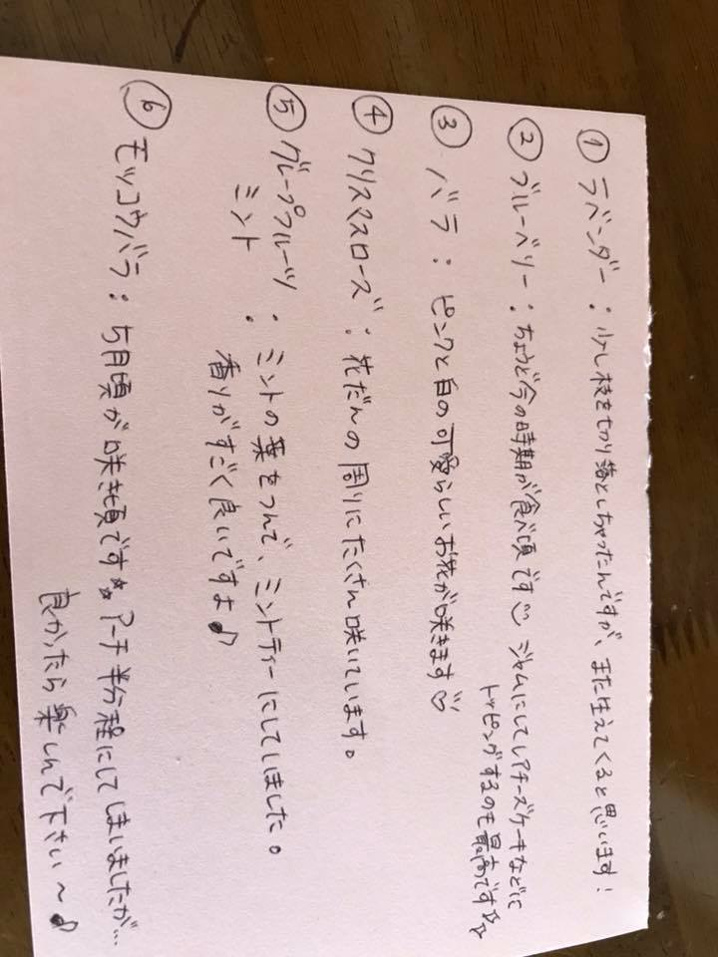 ① ラベンダー : 少し枝を切り落としちゃったんですが、また生えてくると思います!
② ブルーベリー : ちょうど今の時期が食べ頃です♡ ジャムにしてレアチーズケーキなどに
トッピングするのも最高です☆☆
③ バラ : ピンクと白の可愛らしいお花が咲きます♡
④ クリスマスローズ : 花だんの周りにたくさん咲いています。
⑤ グレープフルーツ : ミントの葉をつんで、ミントティーにしてしました。
ミント 香りがすごく良いですよ♪
⑥ モッコウバラ : 5月頃が咲き頃です☆。アーチ半分程にしてしまいましたが…
良かったら楽しんで下さい〜♪